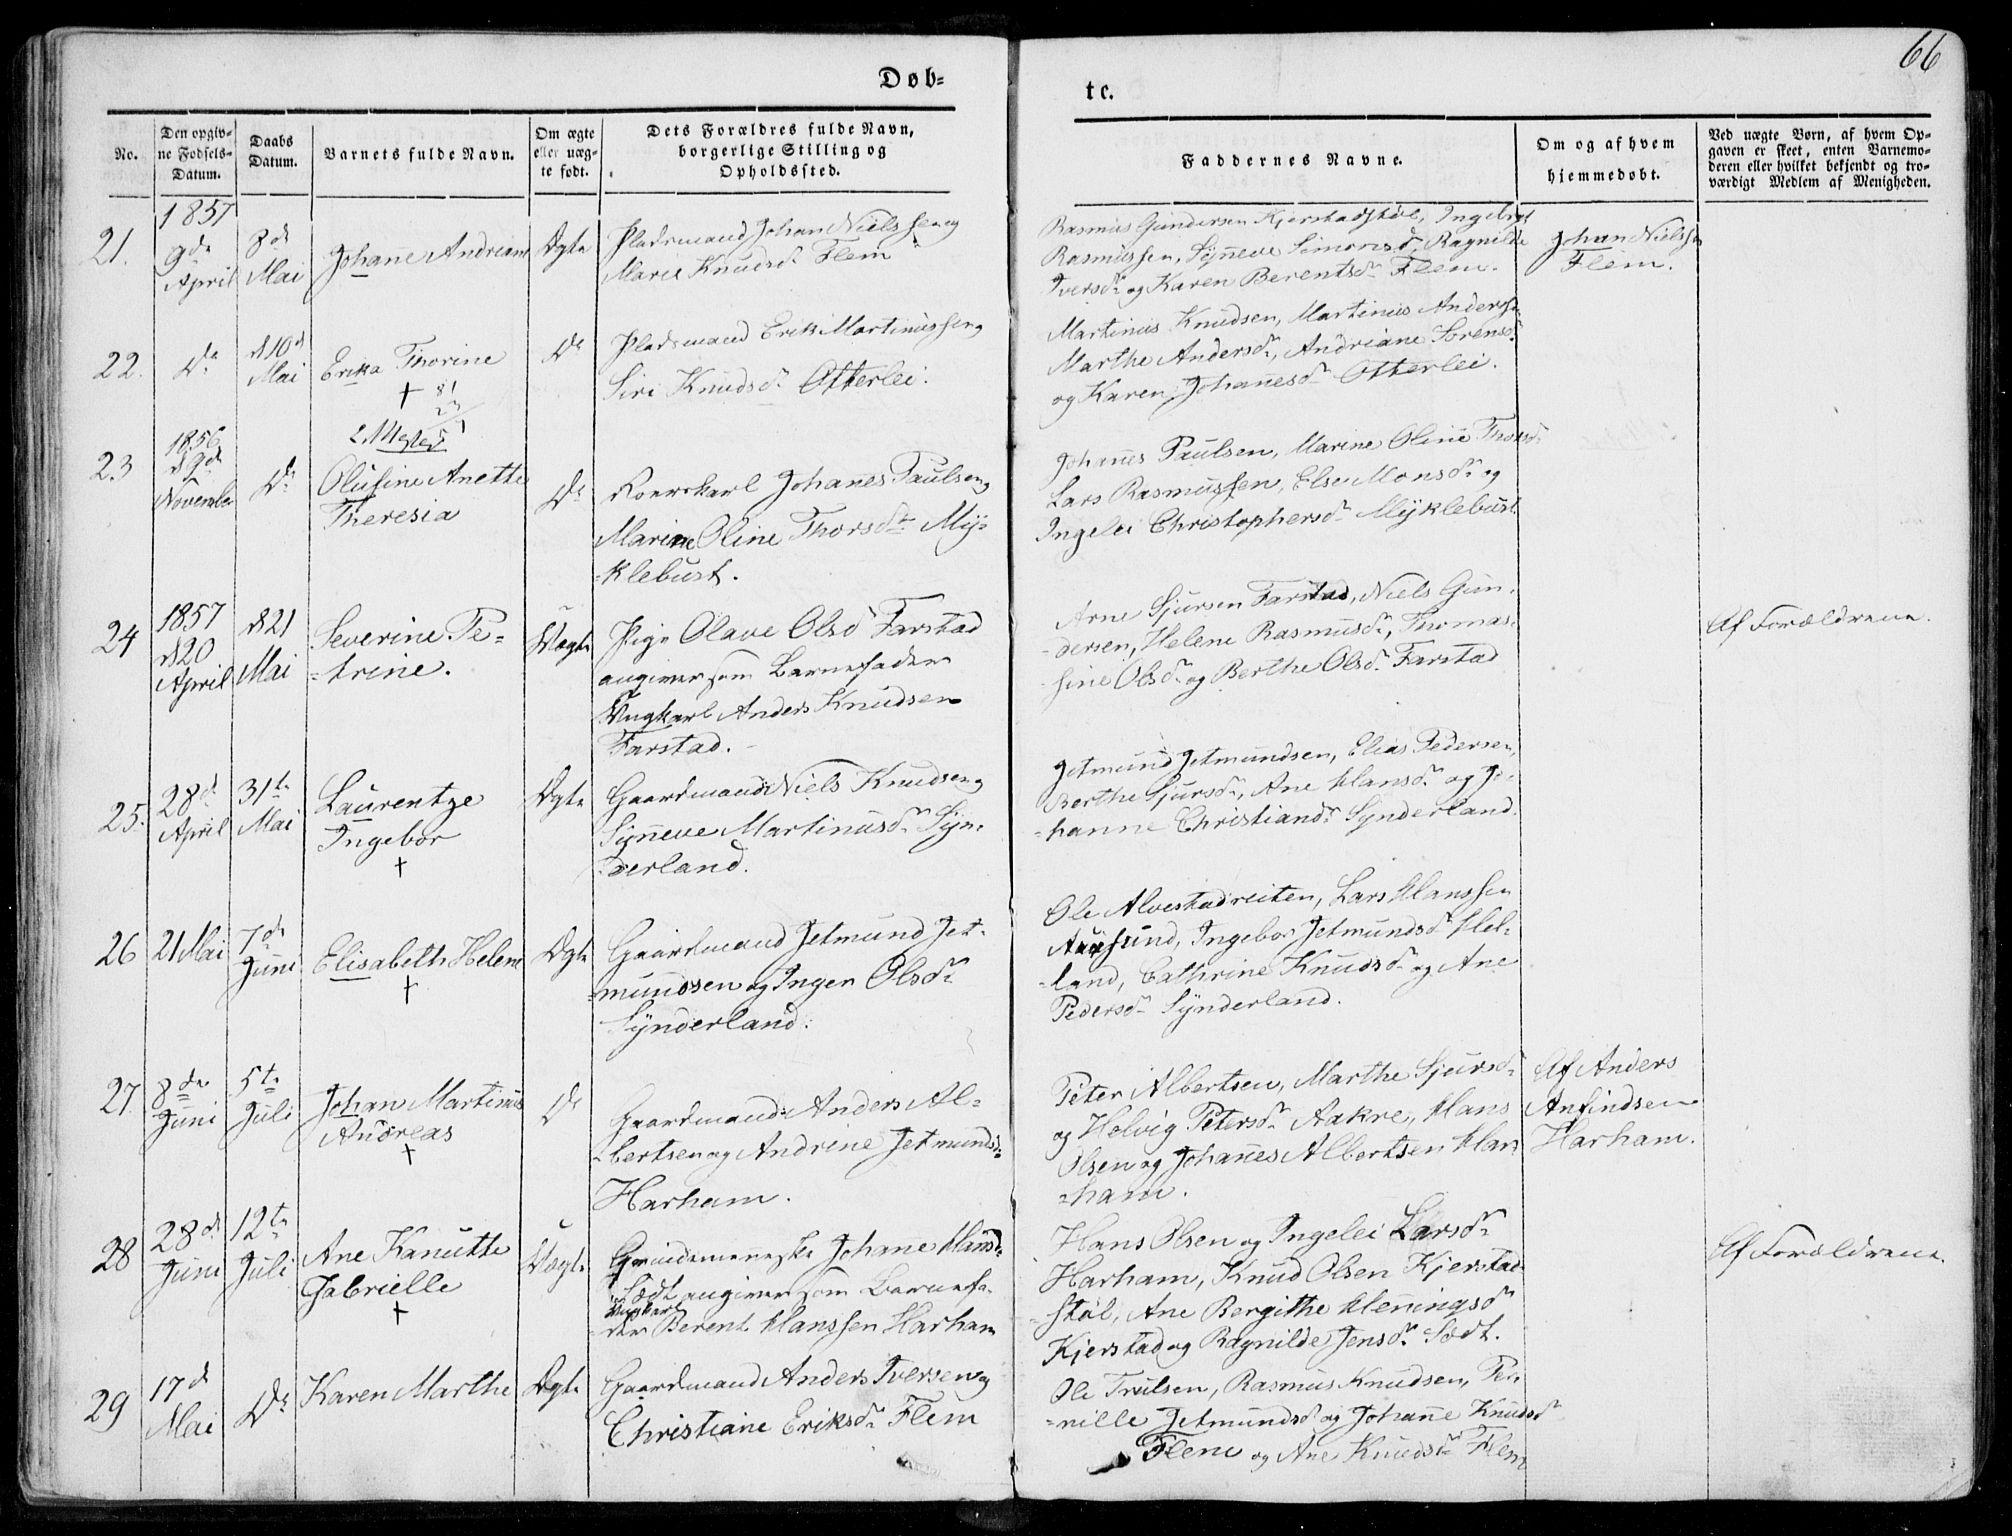 66
Døb-
te.
No.
Den opgiv-
ne Fødsels-
Datum.
Daabs
Datum.
Barnets fulde Navn.
Om ægte
eller uæg-
te født.
Dets Forældres fulde Navn,
borgerlige Stilling og
Opholdssted.
Faddernes Navne.
Om og af hvem
hjemmedøbt.
Ved uægte Børn, af hvem Op-
gaven er skeet, enten Barnemo-
deren eller hvilket bekjendt og tro-
værdigt Medlem af Menigheden.
21.
1857
9de
April
8de
Mai
Johane Andreane
Ægte
Pladsmand Johan Nielssen og
Marie Knudsdr Flem
Rasmus Gundersen Kjerstadstøl, Ingebrigt
Rasmussen, Synneve Simonsdr, Ragnilde
Iversdr og Karen Berentsdr Flem.
Johan Nielssen
Flem.
22.
Do
d 10de
Mai
Erika Thorine
+
Do
Pladsmand Erik Martinussen og
Siri Knudsdr Otterlei.
Martinus Knudsen, Martinus Anderssen
Marthe Andersdr, Andriane Sørensdr
og Karen Johanesdr Otterlei.
23
1856
d 9de
November
Do
Olufine Anette
Theresia
Do
Johanes Paulsen og
Marine Oline Thorsdr My-
klebust.
Johanes Paulsen, Marine Oline Thorsdr
Lars Rasmussen, Else Monsdr og
Ingelei Christophersdr Myklebust.
24
1857
d 20
April
d 21
Mai
Severine Pe-
trine.
Uægte
Pige Olave Olsdr Farstad
angiver som Barnefader
Ungkarl Anders Knudsen
Farstad.
Arne Sjursen Farstad, Niels Gun-
dersen, Helene Rasmusdr, Thomas-
sine Olsdr og Berthe Olsdr Farstad
Af Forældrene.
25.
28de
April
31te
Mai
Laurentze
Ingebor
+
Ægte
Gaardmand Niels Knudsen og
Synneve Martinusdr Syn-
derland.
Jetmund Jetmundsen, Elias Pedersen,
Berthe Sjursdr, Ane Hansdr og Jo-
hanne Christiandr Synderland.
26
21 Mai
7de
Juni
Elisabeth Helene
+
Ægte
Gaardmand Jetmund Jet-
mundssen og Inger Olsdr
Synderland.
Ole Alvestadreiten, Lars Hanssen
Aursund, Ingebor Jetmundsdr Hel-
land, Cathrine Knudsdr og Ane
Pedersdr Synderland.
27
8de
Juni
5te
Juli
Johan Martinus
Andreas
+
Do
Gaardmand Anders Al-
bertsen og Andrine Jetmundsdr
Harham.
Peter Albertsen, Marthe Sjursdr
og Helvig Petersdr Aakre, Hans
Olsen og Johanes Albertsen Har-
ham.
Af Anders
Anfindsen
Harham.
28
28de
Juni
12te
Juli
Ane Kanutte
Gabrielle
+
Uægte
Qvindemenneske Johane Hansdr
Sødt angiver som Barnefa-
Ungkarl
der Berent Hanssen Harham
Hans Olsen og Ingelei Larsdr
Harham, Knud Olsen Kjerstad-
støl, Ane Bergithe Henningsdr
Kjerstad og Ragnilde Jensdr Sødt.
Af Forældrene.
29
17de
Mai
Do
Karen Marthe
Ægte
Gaardmand Anders Iversen og
Christiane Eriksdr Flem
Ole Trulsen, Rasmus Knudsen, Per-
nille Jetmundsdr og Johanne Knudsdr
Flem og Ane Knudsdr Flem